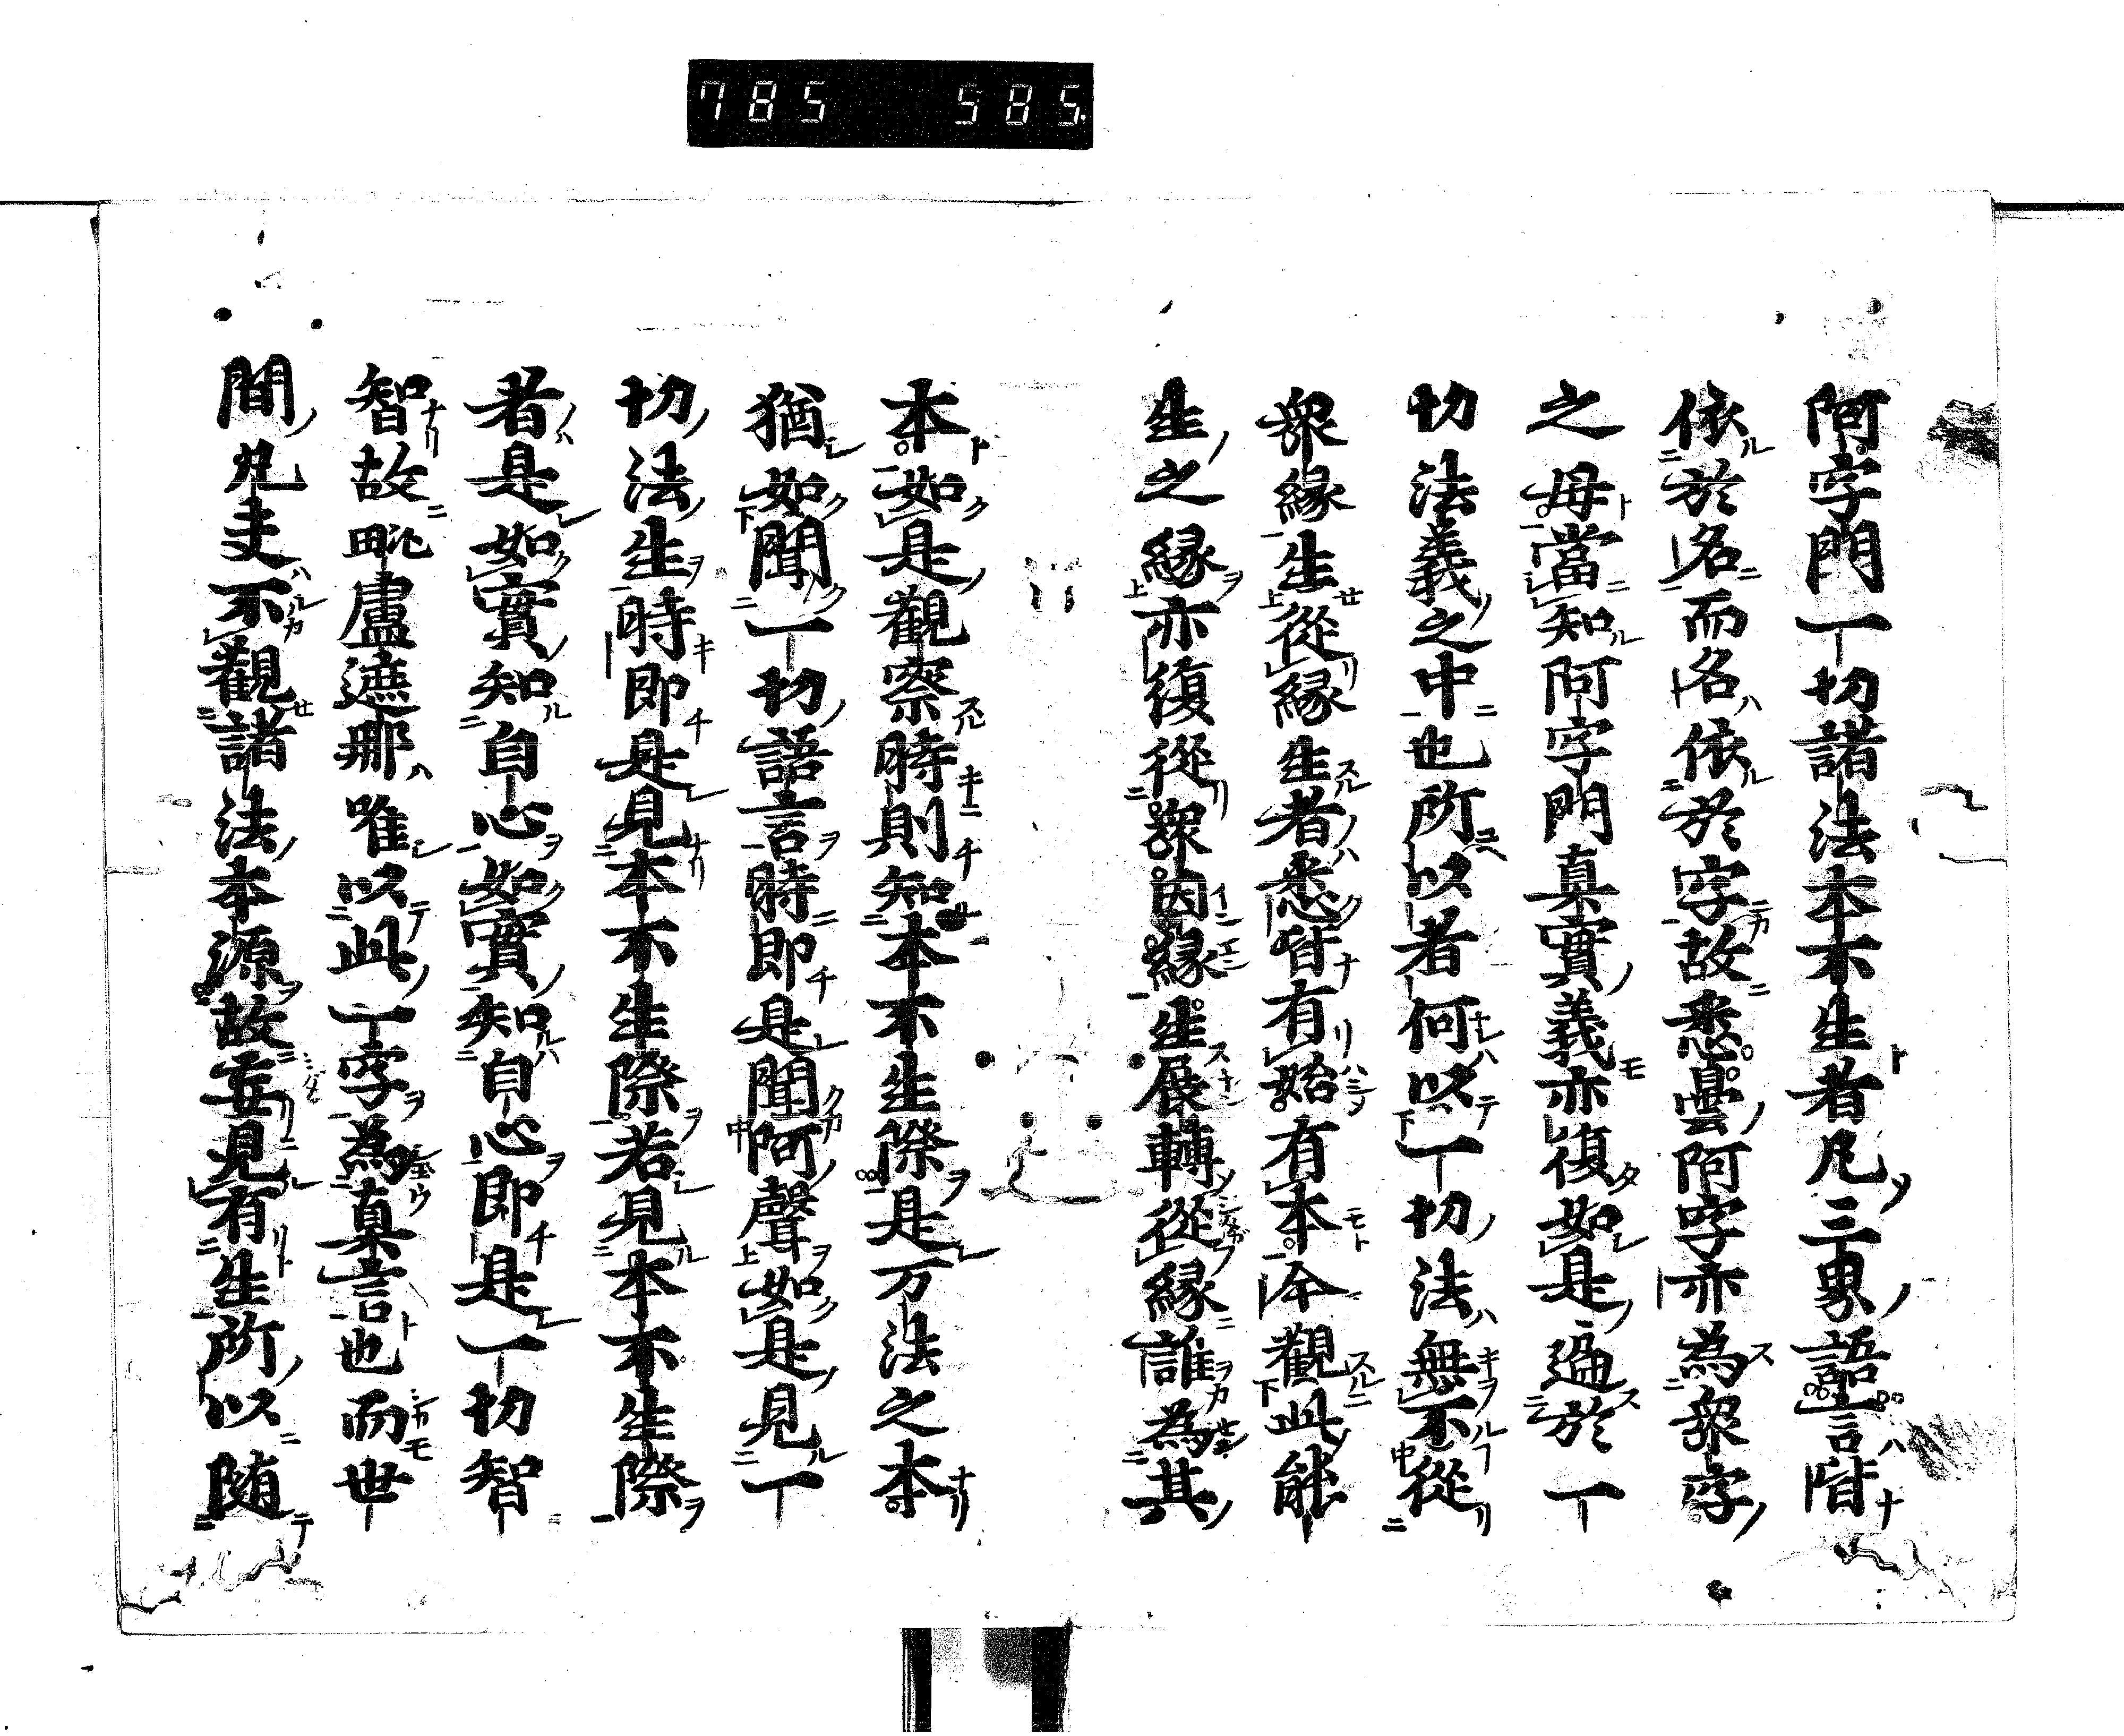 785 585
阿字門一切諸法本不生者凡三界語言皆
依於名而名依於字故悉曇阿字亦為衆字
之母當知阿字門真實義亦復如是遍於一
切法義之中也所以者何以一切法無不從
衆縁生從縁生者悉皆有始有本今觀此能
生之縁亦復從衆因縁生展轉從縁誰為其
本如是觀察時則知本不生際是万法之本
猶如聞一切語言時即是聞阿聲如是見一
切法生時即是見本不生際若見本不生際
者是如實知自心如實知自心即是一切智
智故毗盧遮那唯以此一字為真言也而世
間凡夫不觀諸法本源故妄見有生所以随